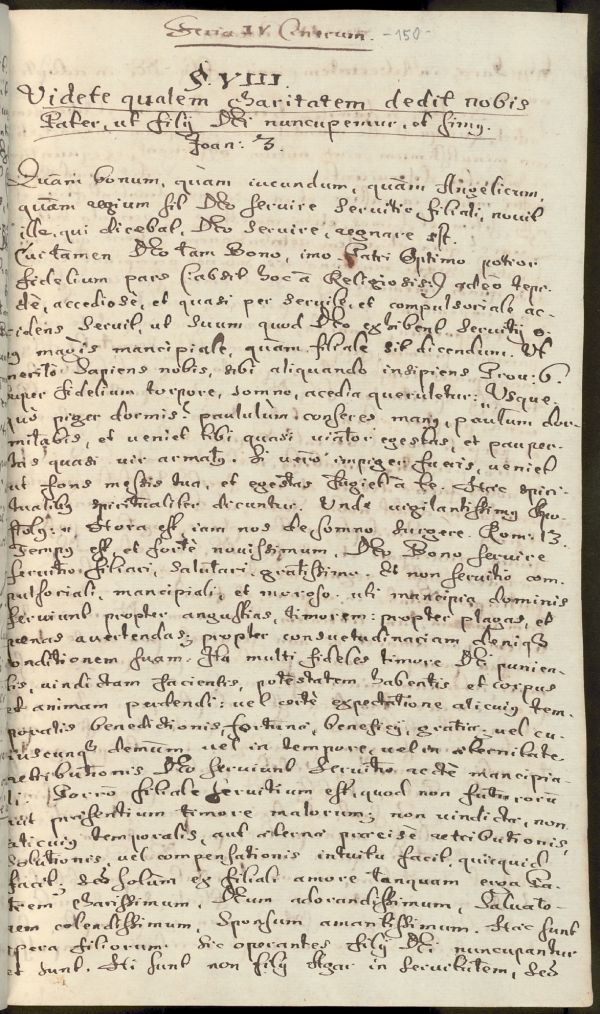 Feria IV. Cinerum. -150-
§ VIII.
Videte qualem charitatem dedit nobis
Pater, ut filij Dei nuncupemur, et simus.
Joan: 3.
Quàm bonum, quàm iucundum, quàm Angelicum,
quàm regium sit Deo servire servitio filiali, novit
ille, qui dicebat, Deo servire, regnare est.
Attamen Deo tam Bono, imo Patri Optimo potior
fidelium pars (absit hoc à Religiosis:) adeò tepi-
dè, accediosè, et quasi per servile, et compulsoriale ac-
cidens servit, ut suum quod Deo exhibent servitium
magis mancipiale, quàm filiale sit dicendum. Ut
meritò Sapiens nobis, sibi aliquando insipiens Prov: 6.
super fidelium torpore, somno, acedia queruletur: Usque
quò piger dormis? paululùm conseres manus, paululum dor-
mitabis, et veniet tibi quasi viator egestas, et pauper-
tas quasi vir armatus. Si verò impiger fueris, veniet
ut fons messis tua, et egestas fugiet à te. Haec spiri-
tualibus spiritualiter dicuntur. Unde vigilantissimus Apo-
stolus: Hora est, iam nos de somno surgere. Rom: 13.
Tempus est, et fortè novissimum, Deo Bono servire
servitio filiali, salutari, gratissimo. Et non servitio com-
pulsoriali, mancipiali, et moroso. uti mancipia dominis
serviunt propter angustias, timorem: propter plagas, et
poenas avertendas; propter consvetudinariam deniq
conditionem suam. Ita multi fideles timore Dei punien-
tis, vindictam facientis, potestatem habentis et corpus
et animam perdendi: vel certè expectatione alicuius tem-
poralis benedictionis, fortunae, beneficij, gratiae, vel cu-
iuscunq demùm vel in tempore, vel in aeternitate
retributionis Deo serviunt servitio rectè mancipia-
li. Porrò filiale servitium est, quod non futurorum
aut praesentium timore malorum; non vindictae, non
alicuius temporalis, aut aeternae praecisè retributionis,
solutionis, vel compensationis intuitu facit, quicquid
facit; sed solùm ex filiali amore tanquam erga Pa-
trem Charissimum, Deum adorandissimum, Salvato-
rem colendissimum, Sponsum amantissimum. Haec sunt
opera filiorum. Sic operantes filij Dei nuncupantur
et sunt. Hi sunt non filij Agar in servitutem, sed